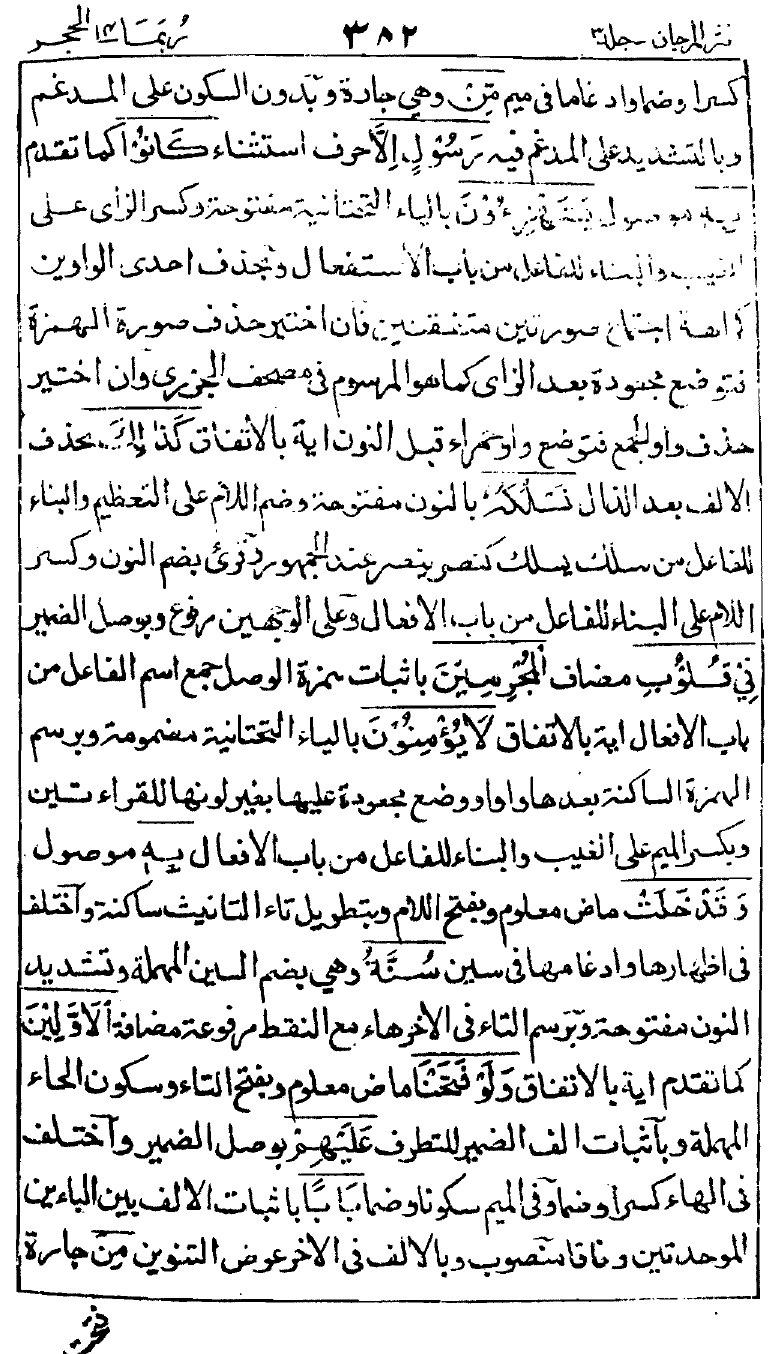 نثر المرجان - جلد ٣ ٣٨٢ ربما ١٤ الحجر
كسرا وضما وادغاما فى ميم مِّنْ وهي جارة وبدون السكون على المدغم
وبالتشديد على المدغم فيه رَسُوْلٍ اِلَّا حرف استثناء كَانُوْا كما تقدم
بِهٖ موصول يَسْتَهْزِءُوْنَ بالياء التحتانية مفتوحة وكسر الزاى على
الغيب والبناء للفاعل من باب الاستفعال وبحذف احدى الواوين
كراهة اجتماع صورتين متفقتين فان اختير حذف صورة الهمزة
فتوضع مجعودة بعد الزاى كما هو المرسوم فى مصحف الجزرى وان اختير
حذف واو الجمع فتوضع واو حمراء قبل النون اية بالاتفاق كَذٰلِكَ بحذف
الالف بعد الذال نَسْلُكُهٗ بالنون مفتوحة وضم اللام على التعظيم والبناء
للفاعل من سلك يسلك كنصر ينصر عند الجمهور وقرئ بضم النون وكسر
اللام على البناء للفاعل من باب الافعال وعلى الوجهين مرفوع وبوصل الضمير
فِيْ قُلُوْبِ مضاف الْمُجْرِمِيْنَ باثبات همزة الوصل جمع اسم الفاعل من
باب الافعال اية بالاتفاق لَا يُؤْمِنُوْنَ بالياء التحتانية مضمومة وبرسم
الهمزة الساكنة بعدها واوا ووضع مجعودة عليها بغير لونها للقراءتين
وبكسر الميم على الغيب والبناء للفاعل من باب الافعال بِهٖ موصول
وَقَدْ خَلَتْ ماض معلوم وبفتح اللام وبتطويل تاء التانيث ساكنة واختلف
فى اظهارها وادغامها فى سين سُنَّةُ وهي بضم السين المهملة وتشديد
النون مفتوحة وبرسم التاء فى الاخرهاء مع النقط مرفوعة مضافة الْاَوَّلِيْنَ
كما تقدم اية بالاتفاق وَلَوْ فَتَحْنَا ماض معلوم وبفتح التاء وسكون الحاء
المهملة وباثبات الف الضمير للتطرف عَلَيْهِمْ بوصل الضمير واختلف
فى الهاء كسرا وضما وفى الميم سكونا وضما بَابًا باثبات الالف بين الباءين
الموحدتين وفاقا منصوب وبالالف فى الاخر عوض التنوين مِّنَ جارة